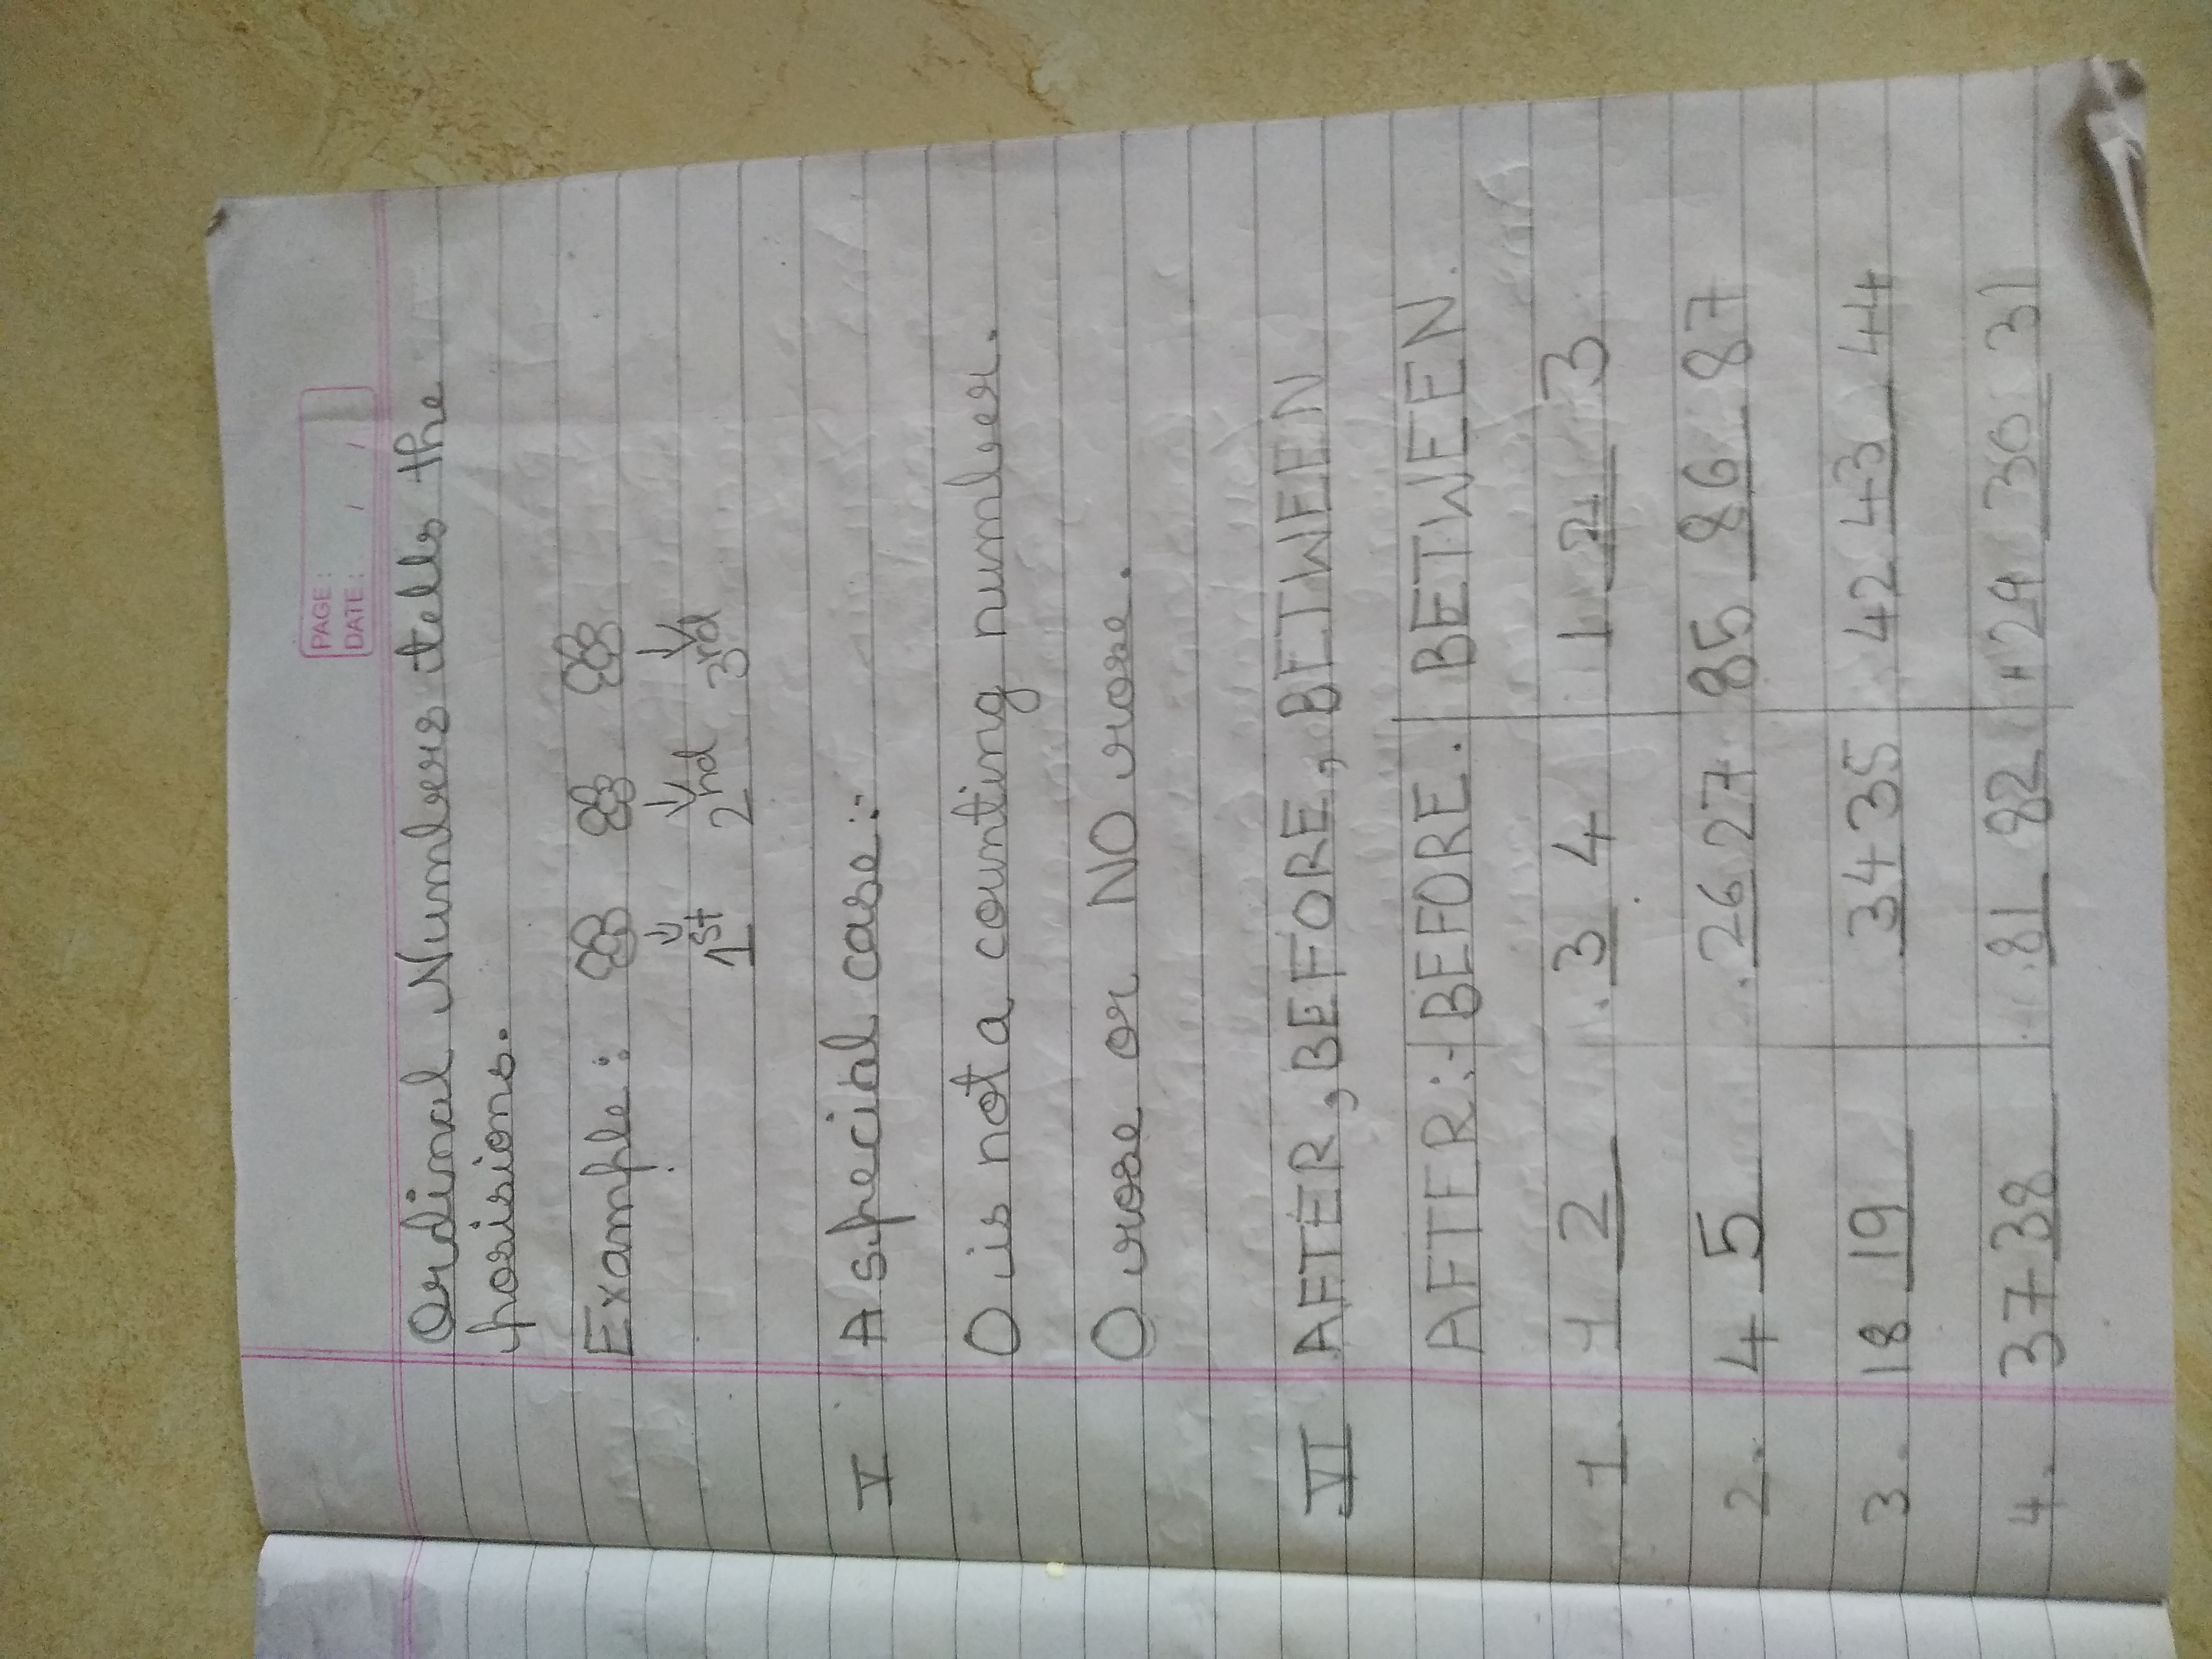 PAGE:
DATE: / /
Ordinal Numbers tells the
posisions.
Example:
1st 2nd 3rd
V A special case:
0 is not a counting number.
0 rose or NO rose.
VI AFTER, BEFORE, BETWEEN
AFTER: BEFORE. BETWEEN.
1. 1 2 3 4 1 2 3
2. 4 5 26 27 85 86 87
3. 18 19 34 35 42 43 44
4. 37 38 81 82 29 30 31